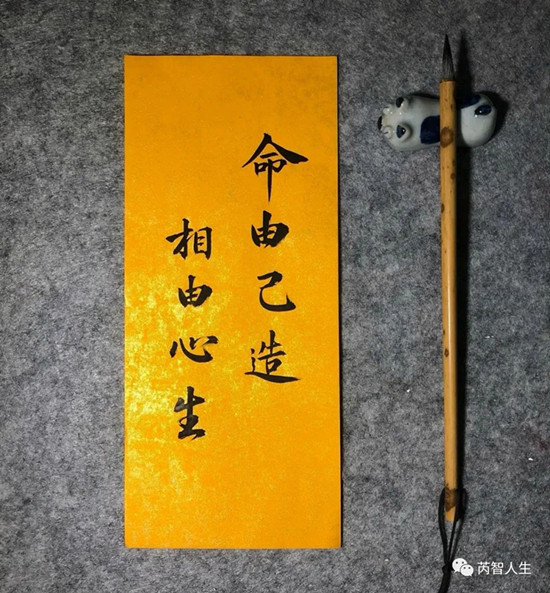 命由己造
相由心生
芮智人生